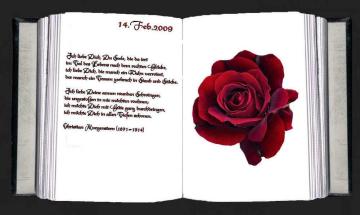 14. Feb. 2009
Ich liebe Dich, Du Seele, die da irrt
im Tal des Lebens nach dem rechten Glücke,
ich liebe Dich, die manch ein Wahn verwirrt,
der manch ein Traum zerbrach in Staub und Stücke.
Ich liebe Deine armen wunden Schwingen,
die ungestoßen in mir möchten wohnen;
ich möchte Dich mit Güte ganz durchdringen,
ich möchte Dich in allen Tiefen schonen.
Christian Morgenstern (1871-1914)